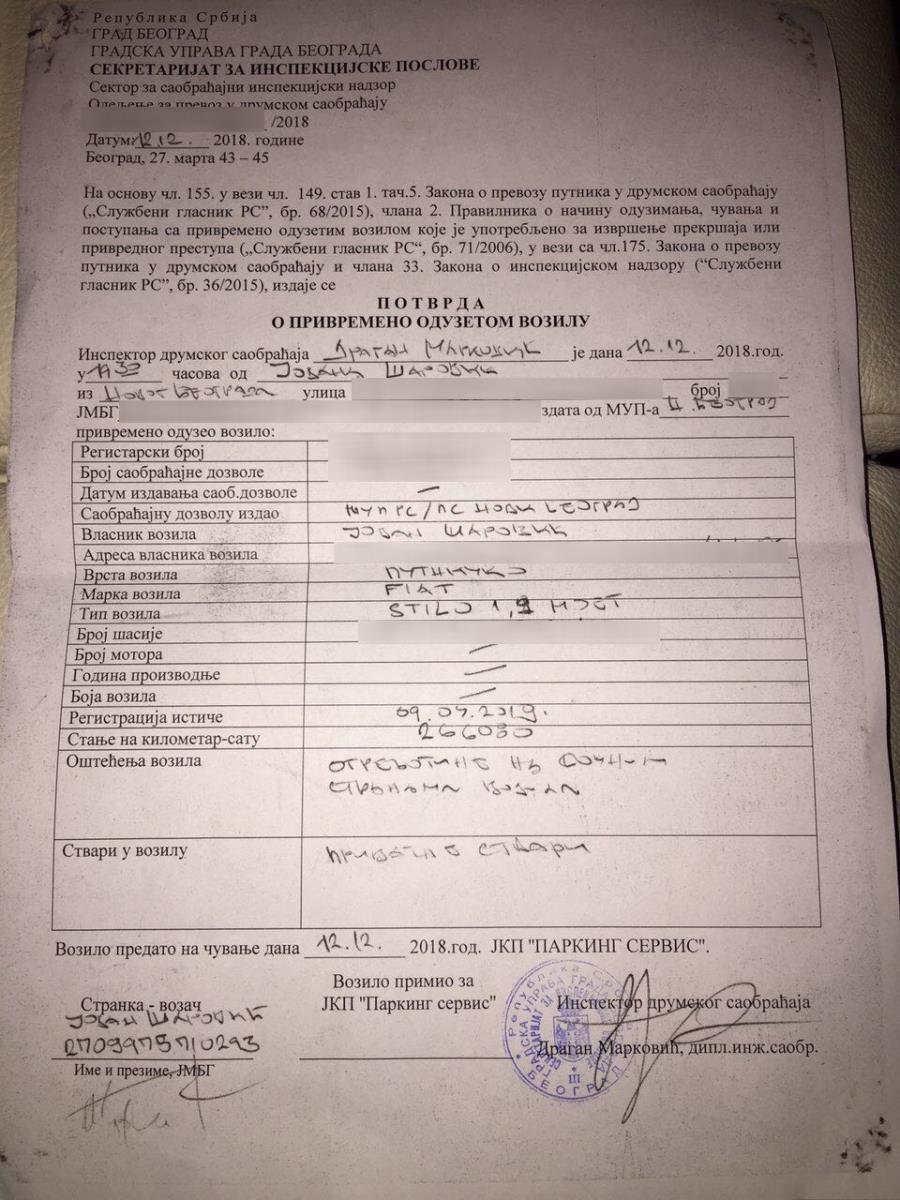 Република Србија
ГРАД БЕОГРАД
ГРАДСКА УПРАВА ГРАДА БЕОГРАДА
СЕКРЕТАРИЈАТ ЗА ИНСПЕКЦИЈСКЕ ПОСЛОВЕ
Сектор за саобраћајни инспекцијски надзор
Одељење за превоз у друмском саобраћају
/2018
Датум: 12.12. 2018. године
Београд, 27. марта 43 – 45
На основу чл. 155. у вези чл. 149. став 1. тач.5. Закона о превозу путника у друмском саобраћају
(„Службени гласник РС”, бр. 68/2015), члана 2. Правилника о начину одузимања, чувања и
поступања са привремено одузетим возилом које је употребљено за извршење прекршаја или
привредног преступа („Службени гласник РС“, бр. 71/2006), у вези са чл.175. Закона о превозу
путника у друмском саобраћају и члана 33. Закона о инспекцијском надзору (“Службени
гласник РС”, бр. 36/2015), издаје се
П О Т В Р Д А
О ПРИВРЕМЕНО ОДУЗЕТОМ ВОЗИЛУ
Инспектор друмског саобраћаја Драган Марковић је дана 12.12. 2018.год.
у часова од Јована Шаровић
из Новог Београда улица број
ЈМБГ здата од МУП-а Београд
привремено одузео возило:
Регистарски број
Број саобраћајне дозволе
Датум издавања саоб.дозволе –
Саобраћајну дозволу издао МУП РС/ПС Нови Београд
Власник возила Јован Шаровић
Адреса власника возила
Врста возила путничко
Марка возила FIAT
Тип возила STILO 1,9
Број шасије
Број мотора –
Година производње –
Боја возила –
Регистрација истиче 09.04.2019.
Стање на километар-сату 266030
Оштећења возила огреботине на бочним
странама возила
Ствари у возилу приватне ствари
Возило предато на чување дана 12.12. 2018.год. ЈКП "ПАРКИНГ СЕРВИС".
Возило примио за
ЈКП "Паркинг сервис"
Странка - возач
Јован Шаровић
2709975710293
Име и презиме, ЈМБГ
Инспектор друмског саобраћаја
Драган Марковић, дипл.инж.саобр.